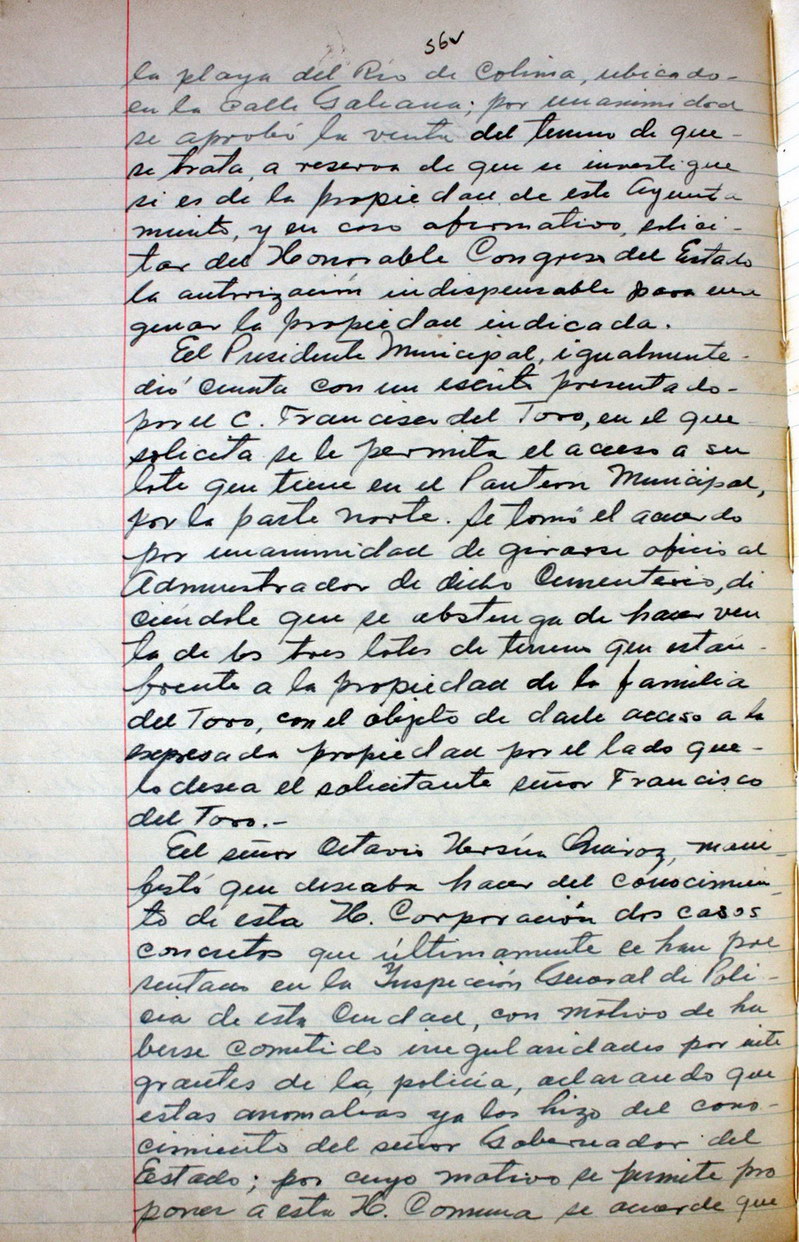 56v
la playa del Río de Colima, ubicado-
en la calle Galeana; por unanimidad
se aprobó la venta del terreno de que-
se trata, a reserva de que se investigue
si es de la propiedad de este Ayunta
miento, y en caso afirmativo, solici-
tar del Honorable Congreso del Estado
la autorización indispensable para ena
genar la propiedad indicada.
El Presidente Municipal, igualmente-
dió cuenta con un escrito presentado-
por el C. Francisco del Toro, en el que
solicita se le permita el acceso a su
lote que tiene en el Panteon Municipal,
por la parte norte. Se tomó el acuerdo
por unanimidad de girarse oficio al
Administrador de dicho Cementerio, di
ciéndole que se abstenga de hacer ven
ta de los tres lotes de terreno que están-
frente a la propiedad de la familia
del Toro, con el objeto de darle acceso a la
expresada propiedad por el lado que-
lo desea el solicitante señor Francisco
del Toro.-
El señor Octavio mani-
festó que deseaba hacer del conocimien
to de esta H. Corporación dos casos
concretos que últimamente se han pre
sentado en la Inspección General de Poli-
cia de esta Ciudad, con motivo de ha
berse cometido irregularidades por inte
grantes de la policía, aclarando que
estas anomalias ya los hizo del cono-
cimiento del señor Gobernador del
Estado; por cuyo motivo se permite pro
poner a esta H. Comuna se acuerde que